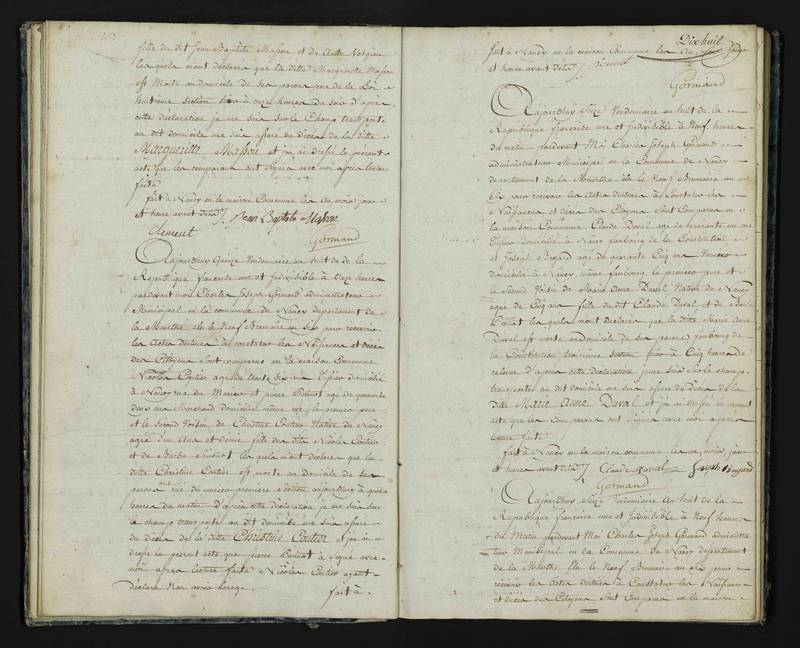 fille du dit Jean Baptiste Masson et de Anne Vosgien
les quels m'ont déclarés que la ditte Marguerite Masson
est Morte au domicile de ses pereus rue de la Loi
huitieme Section hier à onze heures du Soir d'apres
cette déclaration je me suis sur le Champ transporté
au dit domicile me suis assuré du Décès de la ditte
Margueritte Masson et j'en ai dressé le présent
acte que les comparans ont Signés avec moi après lecture
faite
fait à Nancy en la maison Commune les An, mois, jour
et heure avant dits Jean Baptiste Masson
Clement Gormand
Aujourdhuy Quinze Vendemiaire an huit de la
Republique francaise une et Indivisible à Onze heures
pardevant moi Charles Joseph Gormand administrateur
Municipal en la commune de Nancy departement de
la Meurthe élu le Neuf Brumaire an Six pour recevoir
les Actes destinés à constater les Naissances et décès
des Citoyens sont comparus en la maison Commune
Nicolas Coutier agé de trente six ans Tissier domicilié
à Nancy rue du Marais et pierre agé de quarante
deux ans Marchand domicilié même rue le premier pere
et le Second Voisin de Christine Coutier Native de Nancy
agée d'un Ans et demie fille des dits Nicolas Coutier
et de Barbe Simonet les quels m'ont déclaré que la
ditte Christine Coutier est morte au domicile de ses
pereus rue du marais premiere Section aujourdhuy à quatre
heures du matin d'après cette déclaration je me suis sur
le champ transporté au dit domicile me suis assuré
du Décès de la ditte Christine Coutier et j'en ai
dressé le present acte que pierre à Signé avec
moi apres lecture faite Nicolas Coutier ayant
déclaré Non avoir l'usage.
fait à
Dixhuit
fait à Nancy en la maison Commune les An, mois, jour
et heure avant dits
Gormand
Aujourdhuy Seize Vendemiaire an huit de la
Republique francaise une et Indivisible à Neuf heures
du matin pardevant Moi Charles Joseph Gormand
administrateur Municipal en la Commune de Nancy
departement de la Meurthe élu le Neuf Brumaire an
Six pour recevoir les Actes destinés à Constater les
Naissances et décès des Citoyens Sont Comparus en
la maison Commune Claude Duval agé de quarante un ans
Tissier domicilié à Nancy faubourg de la Constitution
et Joseph Bagard agé de quarante Cinq ans
domicilié à Nancy même faubourg, le premier pere et
le Second Voisin de Marie Anne Duval Native de Nancy
agée de Cinq ans fille du dit Claude Duval et de
les quels m'ont déclarés que la ditte Marie Anne
Duval est morte au domicile de ses pereus faubourg de
la Constitution troisieme Section hier à Cinq heures de
relevée d'après cette déclaration je me suis sur le champ
transporté au dit domicile me suis assuré du Décès de la
ditte Marie Anne Duval et j'en ai dressé le présent
acte que les Comparans ont Signés avec moi après
lecture faite
fait à Nancy en la maison commune les an, mois, jour
et heure avant dits Claude Duval Joseph Bagard
Gormand
Aujourdhuy Seize Vendemiaire an huit de la
Republique francaise une et Indivisible à Neuf heures
du Matin pardevant Moi Charles Joseph Gormand administra-
teur Municipal en la Commune de Nancy departement
de la Meurthe élu le Neuf Brumaire an Six pour
recevoir les Actes destinés à Constater les Naissances
et décès des Citoyens Sont Comparus en la maison